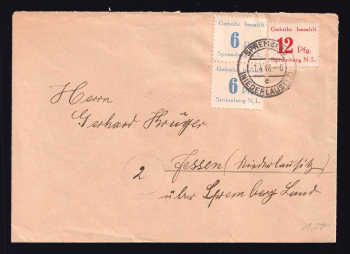 Gebühr bezahlt
6 Pfg.
Spremberg N.L.
Gebühr bezahlt
12 Pfg.
Spremberg N.L.
Gebühr bezahlt
6
Spremberg N.L.
SPREMBERG
(NIEDERLAUSITZ)
Herrn
Gerhard Krüger
2
Jessen (Niederlausitz)
über Spremberg Land